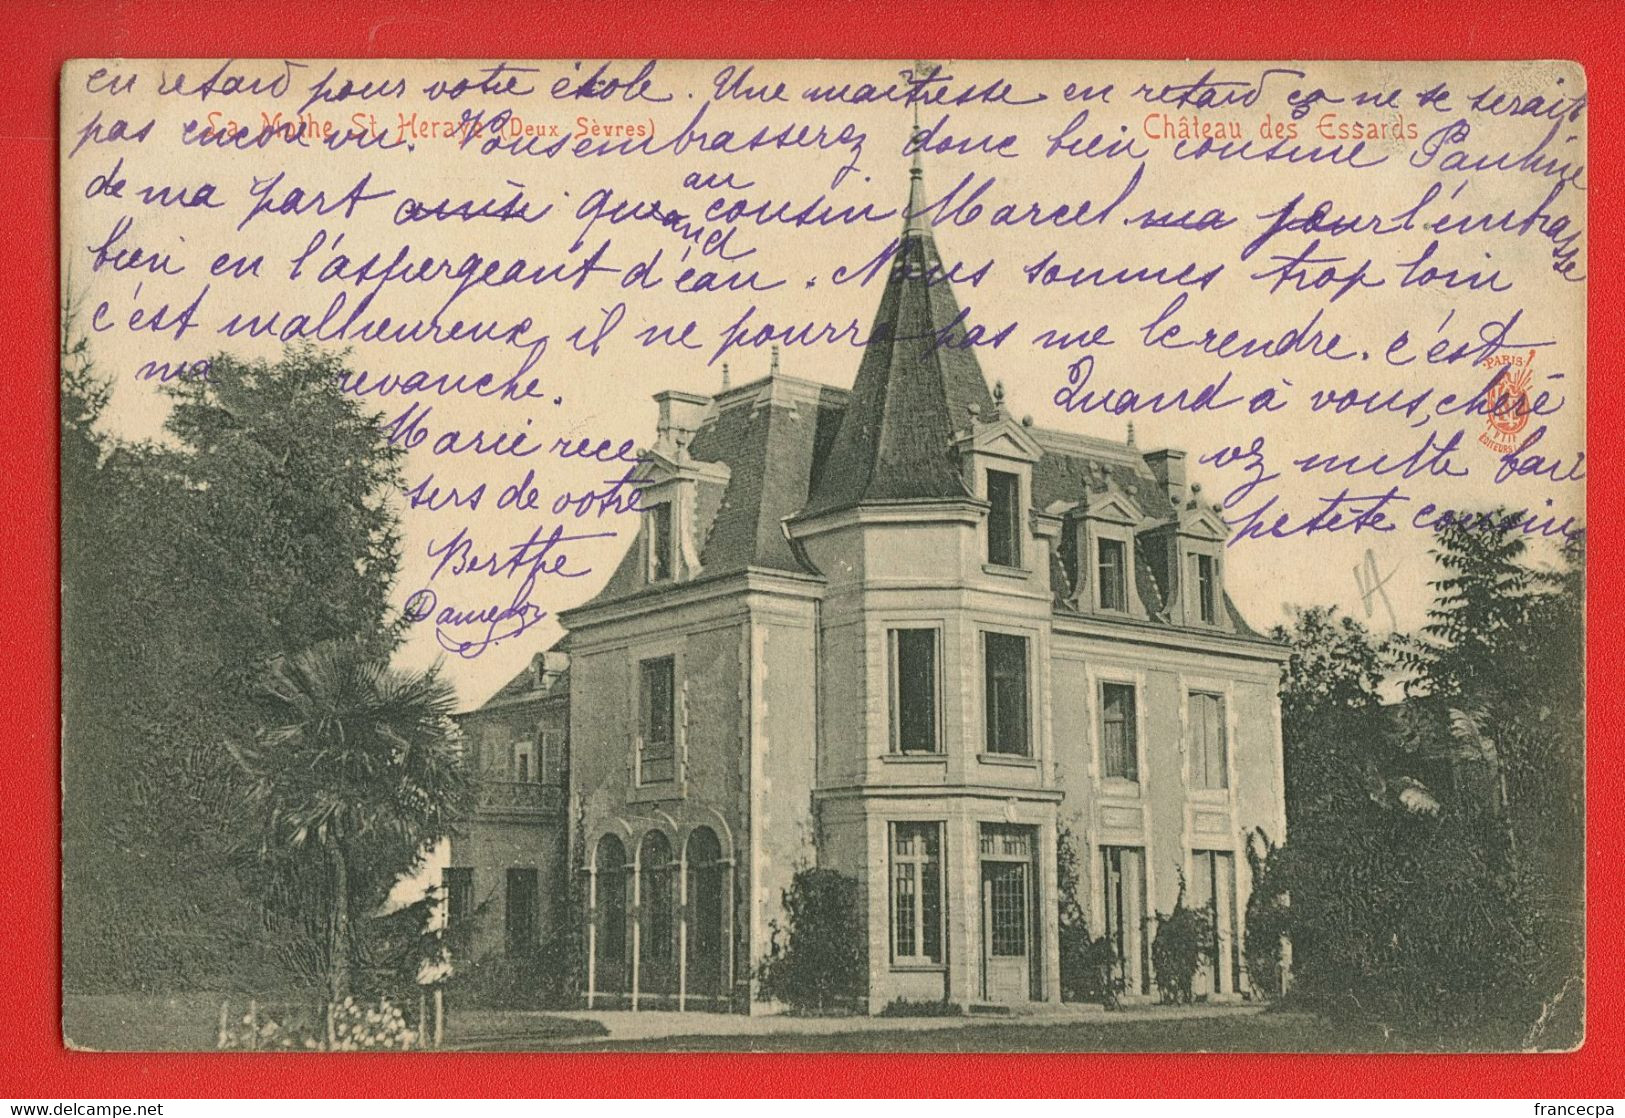 en retard pour votre école. Une maîtresse en retard ça ne se serait
La Mothe St Heraye (Deux Sèvres)
Château des Essards
pas encore vu. Vous embrasserez donc bien cousine Pauline
de ma part ainsi que au cousin Marcel ma pour l'embrasse
and
bien en l'aspergeant d'eau. Nous sommes trop loin
c'est malheureux il ne pourra pas me le rendre. c'est
ma revanche.
Quand à vous, chéré
Marie rece
vez mille bai
sers de votre
petite cousine
Berthe
PARIS
EDITEURS
francecpa